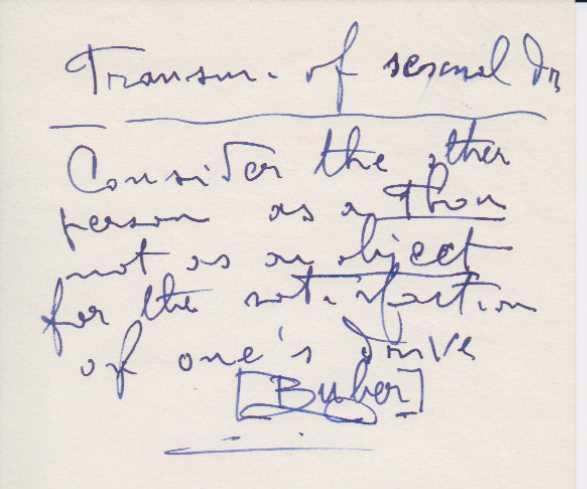 Transm. of sexual Dr
Consider the other
person as a Thou
not as an object
for the satisfaction
of one's drive
[Buber]